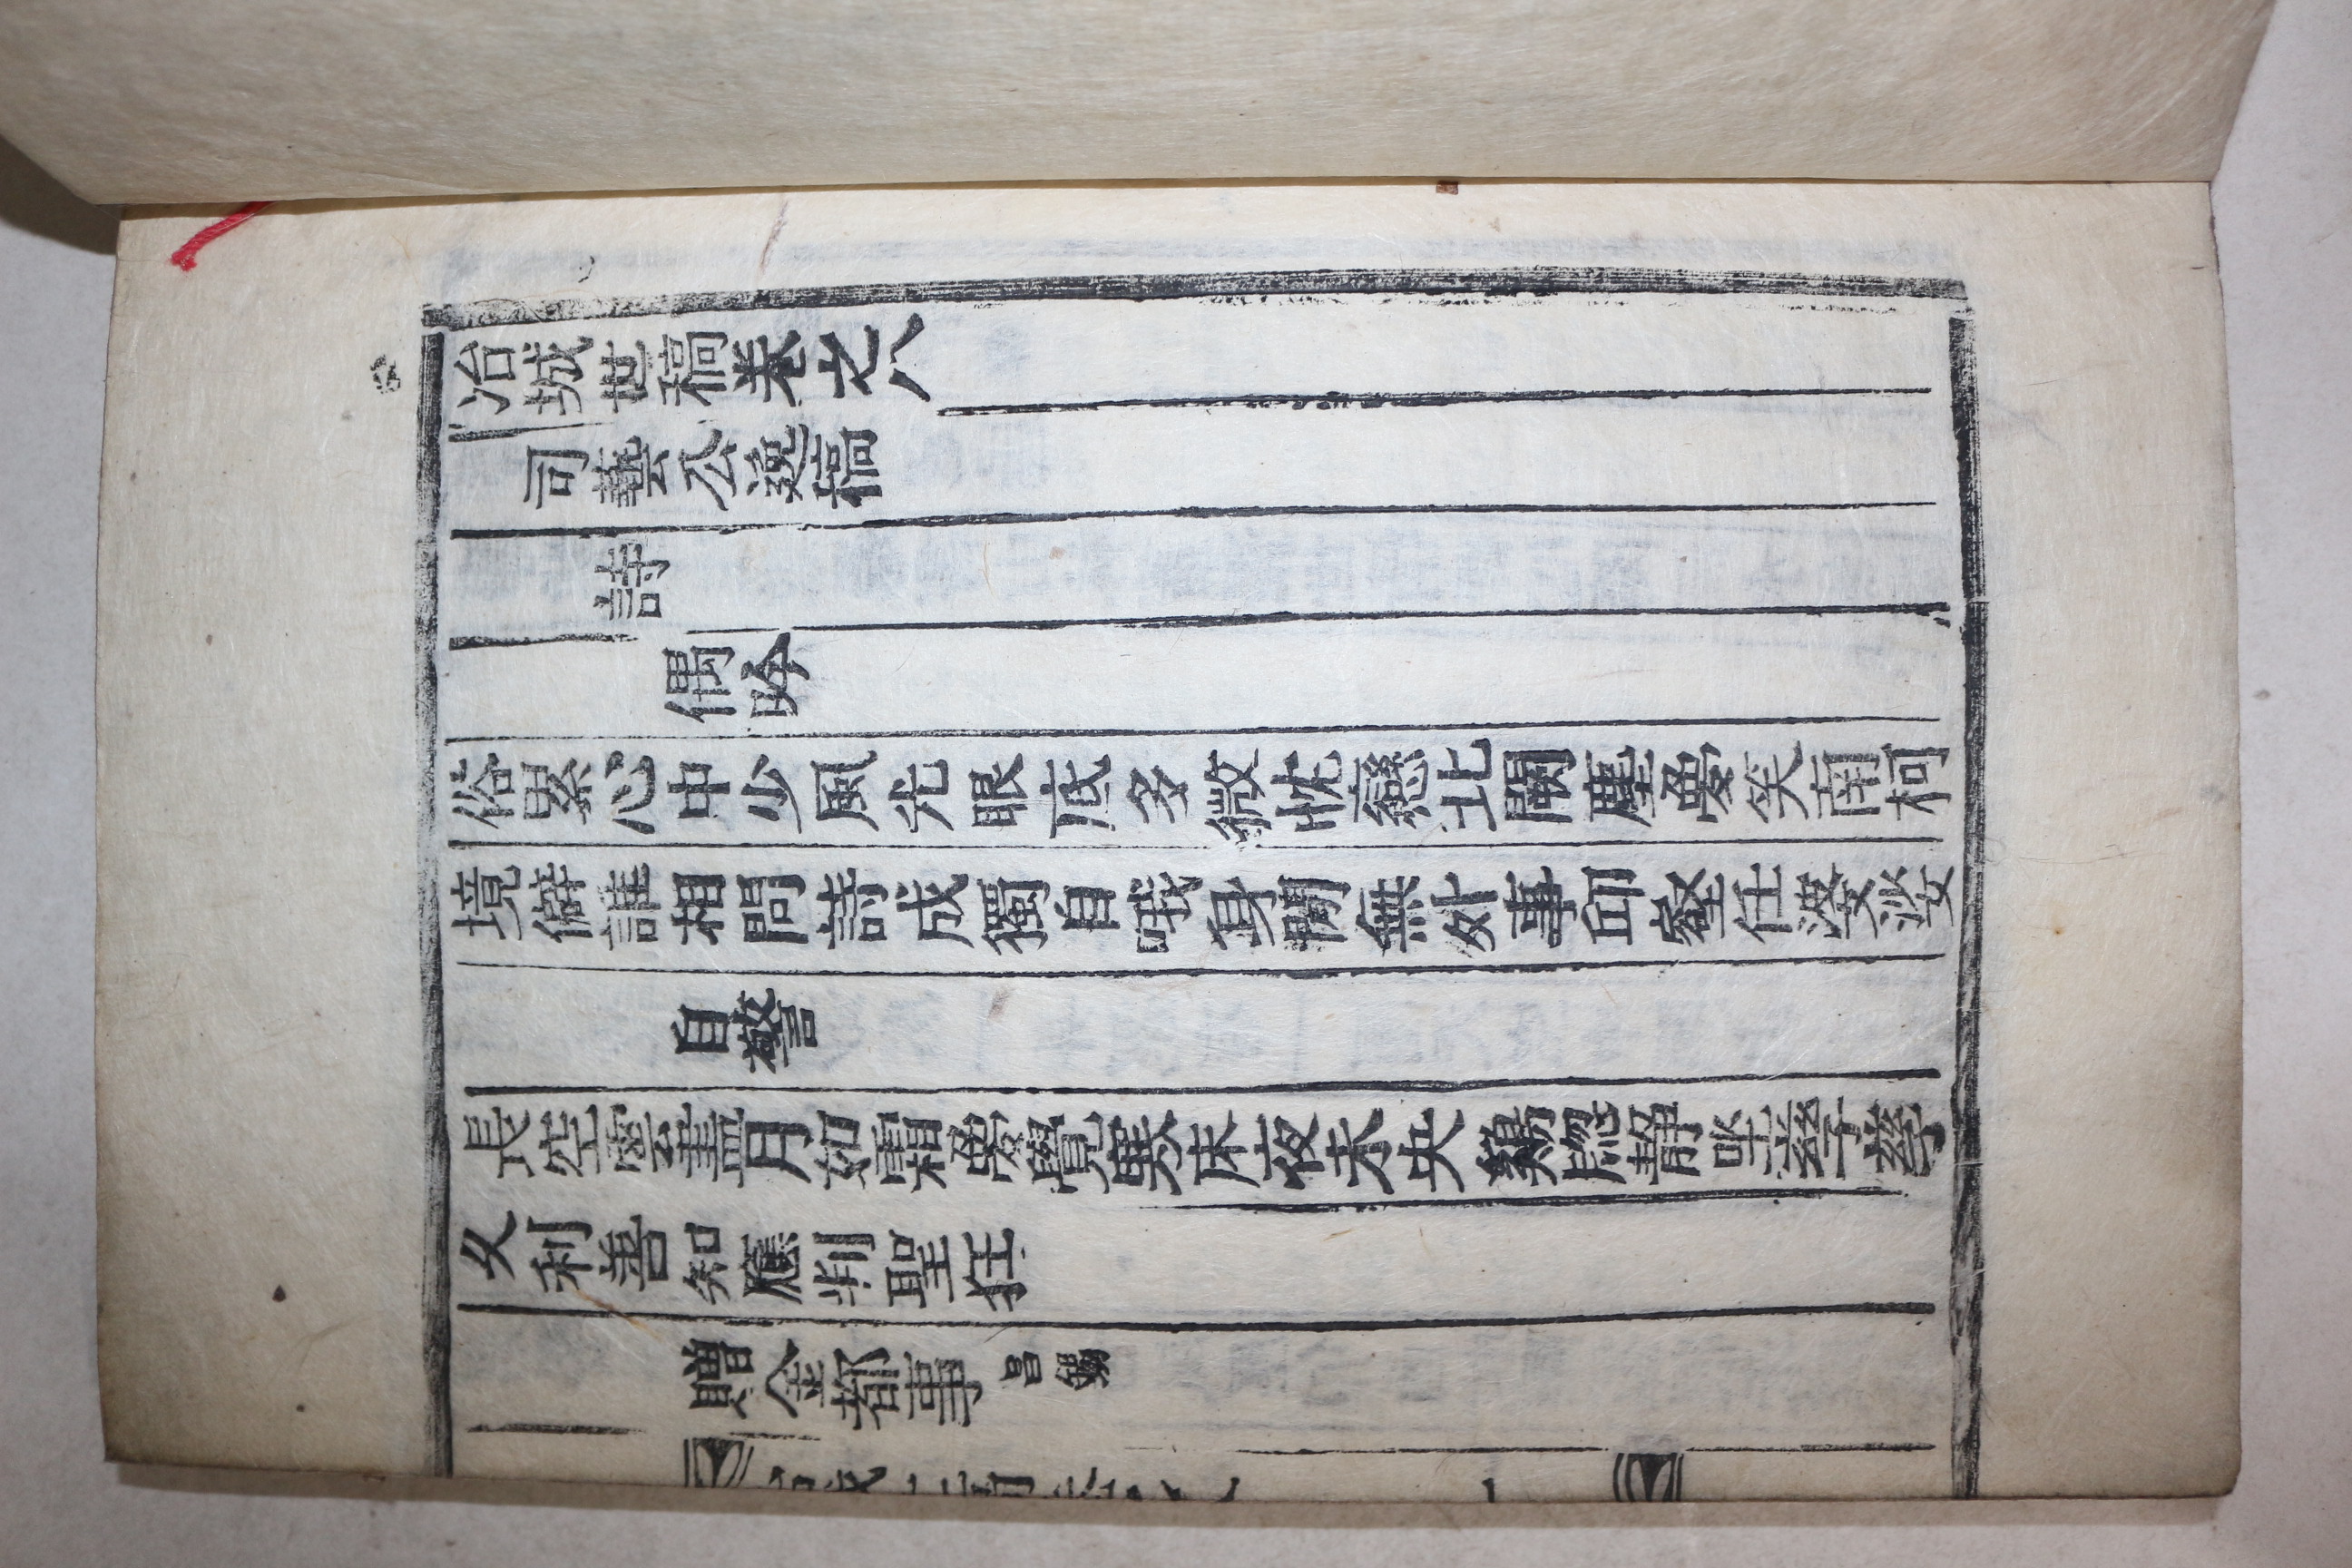 冶城世稿卷之八
司藝公逸稿
詩
偶吟
俗累心中少風光眼底多微忱戀北闕塵夢笑南柯
境僻誰相問詩成獨自哦身閒無外事邱壑任婆娑
自警
長空雲盡月如霜夢覺寒床夜未央鷄牕靜坐孶孶
久利善知應判聖狂
贈金都事昌